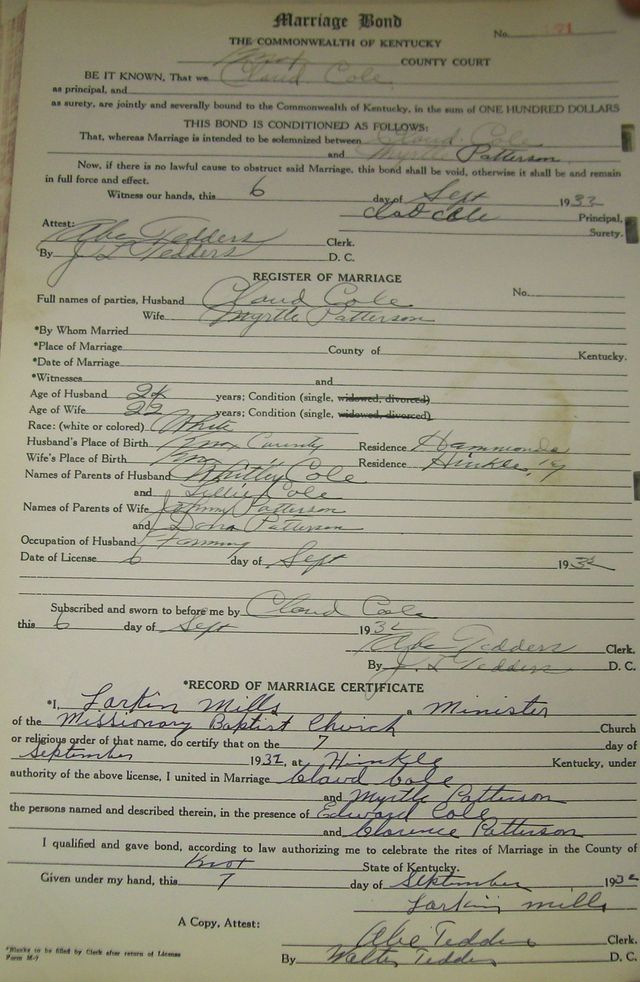 Marriage Bond
No. 
THE COMMONWEALTH OF KENTUCKY
Knox COUNTY COURT
BE IT KNOWN, That we Claud Cole
as principal, and
as surety, are jointly and severally bound to the Commonwealth of Kentucky, in the sum of ONE HUNDRED DOLLARS
THIS BOND IS CONDITIONED AS FOLLOWS:
That, whereas Marriage is intended to be solemnized between Claud Cole
and Myrtle Patterson
Now, if there is no lawful cause to obstruct said Marriage, this bond shall be void, otherwise it shall be and remain
in full force and effect.
Witness our hands, this 6 day of Sept 1932
Clad Cole Principal,
Surety.
Attest:
Abe Tedders Clerk.
By J L Tedders D. C.
REGISTER OF MARRIAGE
Full names of parties, Husband Claud Cole No.
Wife Myrtle Patterson
*By Whom Married
*Place of Marriage County of Kentucky.
*Date of Marriage
*Witnesses and
Age of Husband 24 years; Condition (single, widowed, divorced)
Age of Wife 22 years; Condition (single, widowed, divorced)
Race: (white or colored) White
Husband's Place of Birth Knox County Residence Hammonds
Wife's Place of Birth Knox " Residence Hinkle, Ky
Names of Parents of Husband Whitley Cole
and Lillie Cole
Names of Parents of Wife Johnny Patterson
and Dora Patterson
Occupation of Husband Farming
Date of License 6 day of Sept 1932
Subscribed and sworn to before me by Claud Cole
this 6 day of Sept 1932
Abe Tedders Clerk.
By J L Tedders D. C.
*RECORD OF MARRIAGE CERTIFICATE
*I, Larkin Mills a Minister
of the Missionary Baptist Church Church
or religious order of that name, do certify that on the 7 day of
September 1932, at Hinkle Kentucky, under
authority of the above license, I united in Marriage Claud Cole
and Myrtle Patterson
the persons named and described therein, in the presence of Edward Cole
and Clarence Patterson
I qualified and gave bond, according to law authorizing me to celebrate the rites of Marriage in the County of
Knox State of Kentucky.
Given under my hand, this 7 day of September 1932
Larkin Mills
A Copy, Attest:
Abe Tedders Clerk.
By Walter Tedders D. C.
*Blanks to be filled by Clerk after return of License
Form M-7